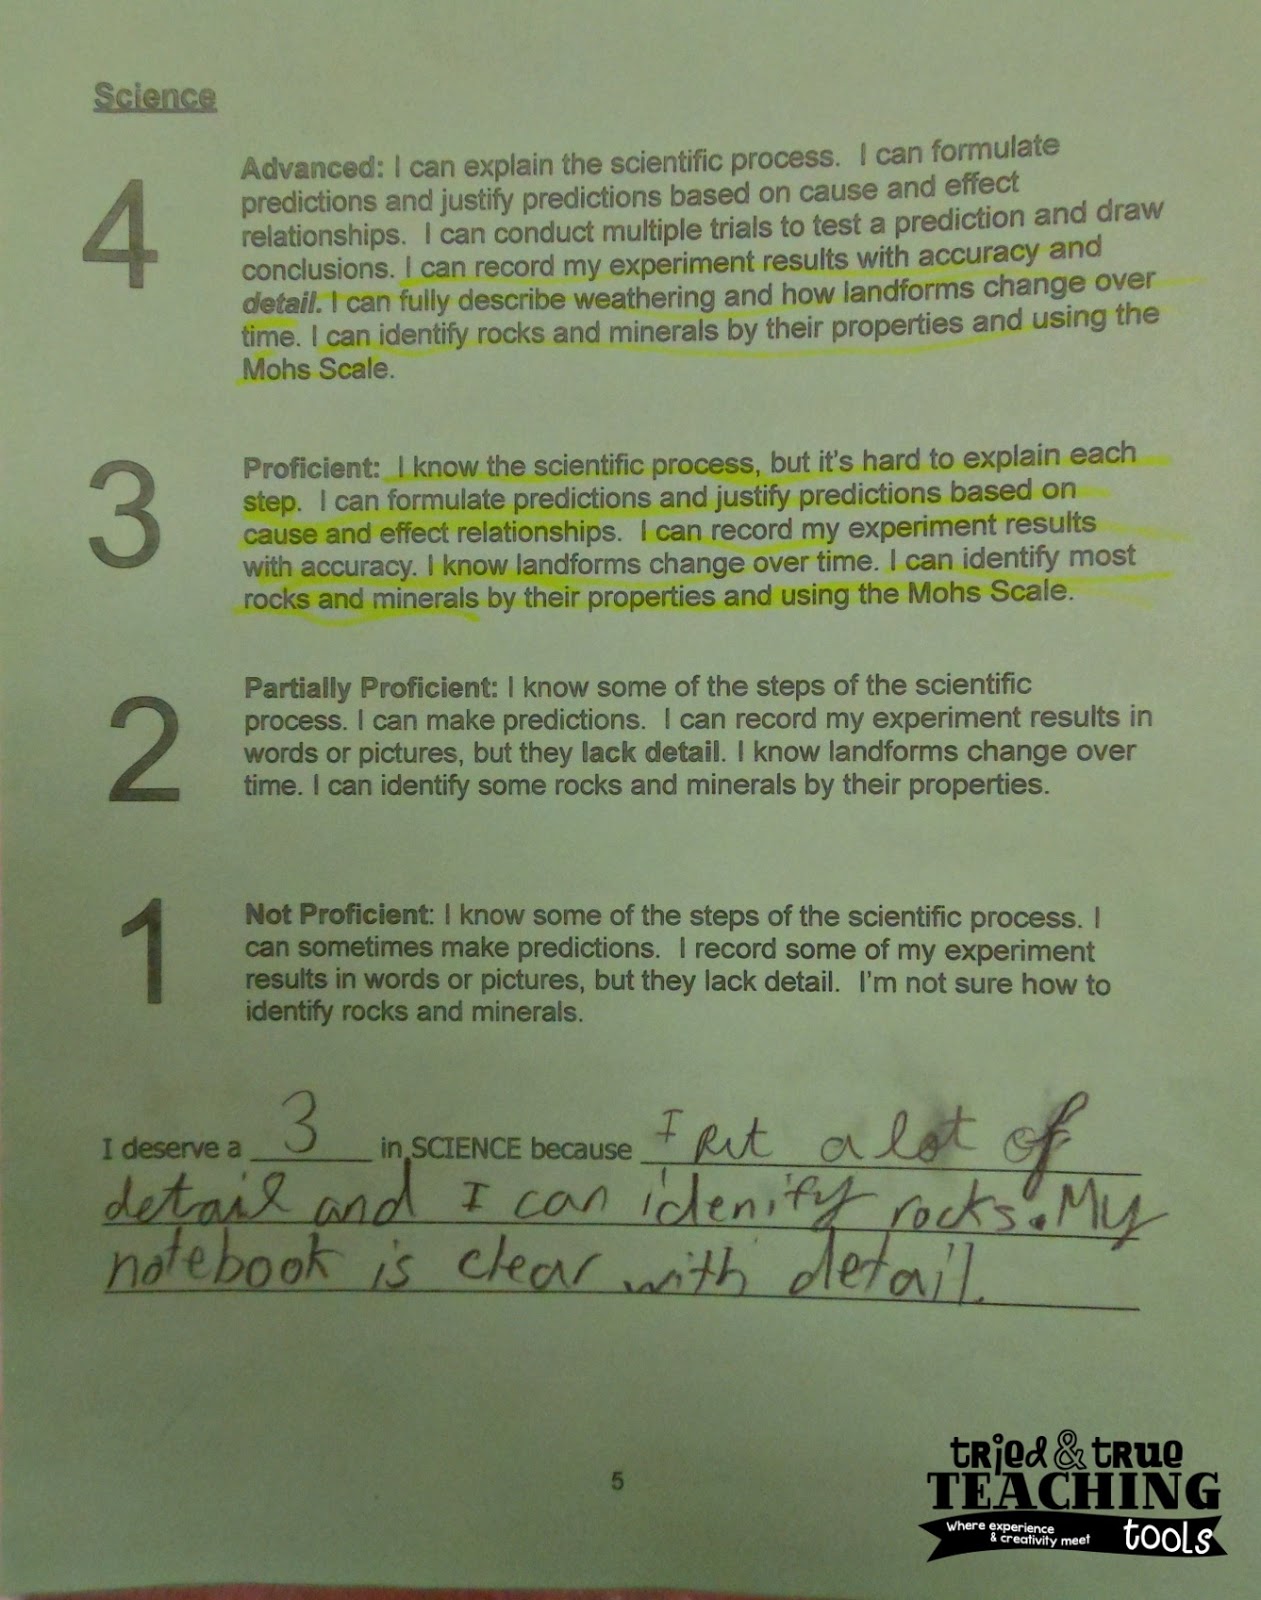 Science
4
Advanced: I can explain the scientific process. I can formulate
predictions and justify predictions based on cause and effect
relationships. I can conduct multiple trials to test a prediction and draw
conclusions. I can record my experiment results with accuracy and
detail. I can fully describe weathering and how landforms change over
time. I can identify rocks and minerals by their properties and using the
Mohs Scale.
3
Proficient: I know the scientific process, but it's hard to explain each
step. I can formulate predictions and justify predictions based on
cause and effect relationships. I can record my experiment results
with accuracy. I know landforms change over time. I can identify most
rocks and minerals by their properties and using the Mohs Scale.
2
Partially Proficient: I know some of the steps of the scientific
process. I can make predictions. I can record my experiment results in
words or pictures, but they lack detail. I know landforms change over
time. I can identify some rocks and minerals by their properties.
1
Not Proficient: I know some of the steps of the scientific process. I
can sometimes make predictions. I record some of my experiment
results in words or pictures, but they lack detail. I'm not sure how to
identify rocks and minerals.
I deserve a 3 in SCIENCE because I put a lot of
detail and I can idenify rocks. My
notebook is clear with detail.
5
tried & true
TEACHING
Where experience
& creativity meet
tools